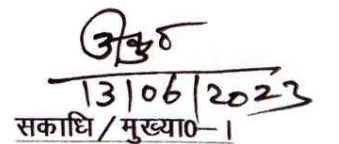 13/06/2023
सकाधि / मुख्या0-1